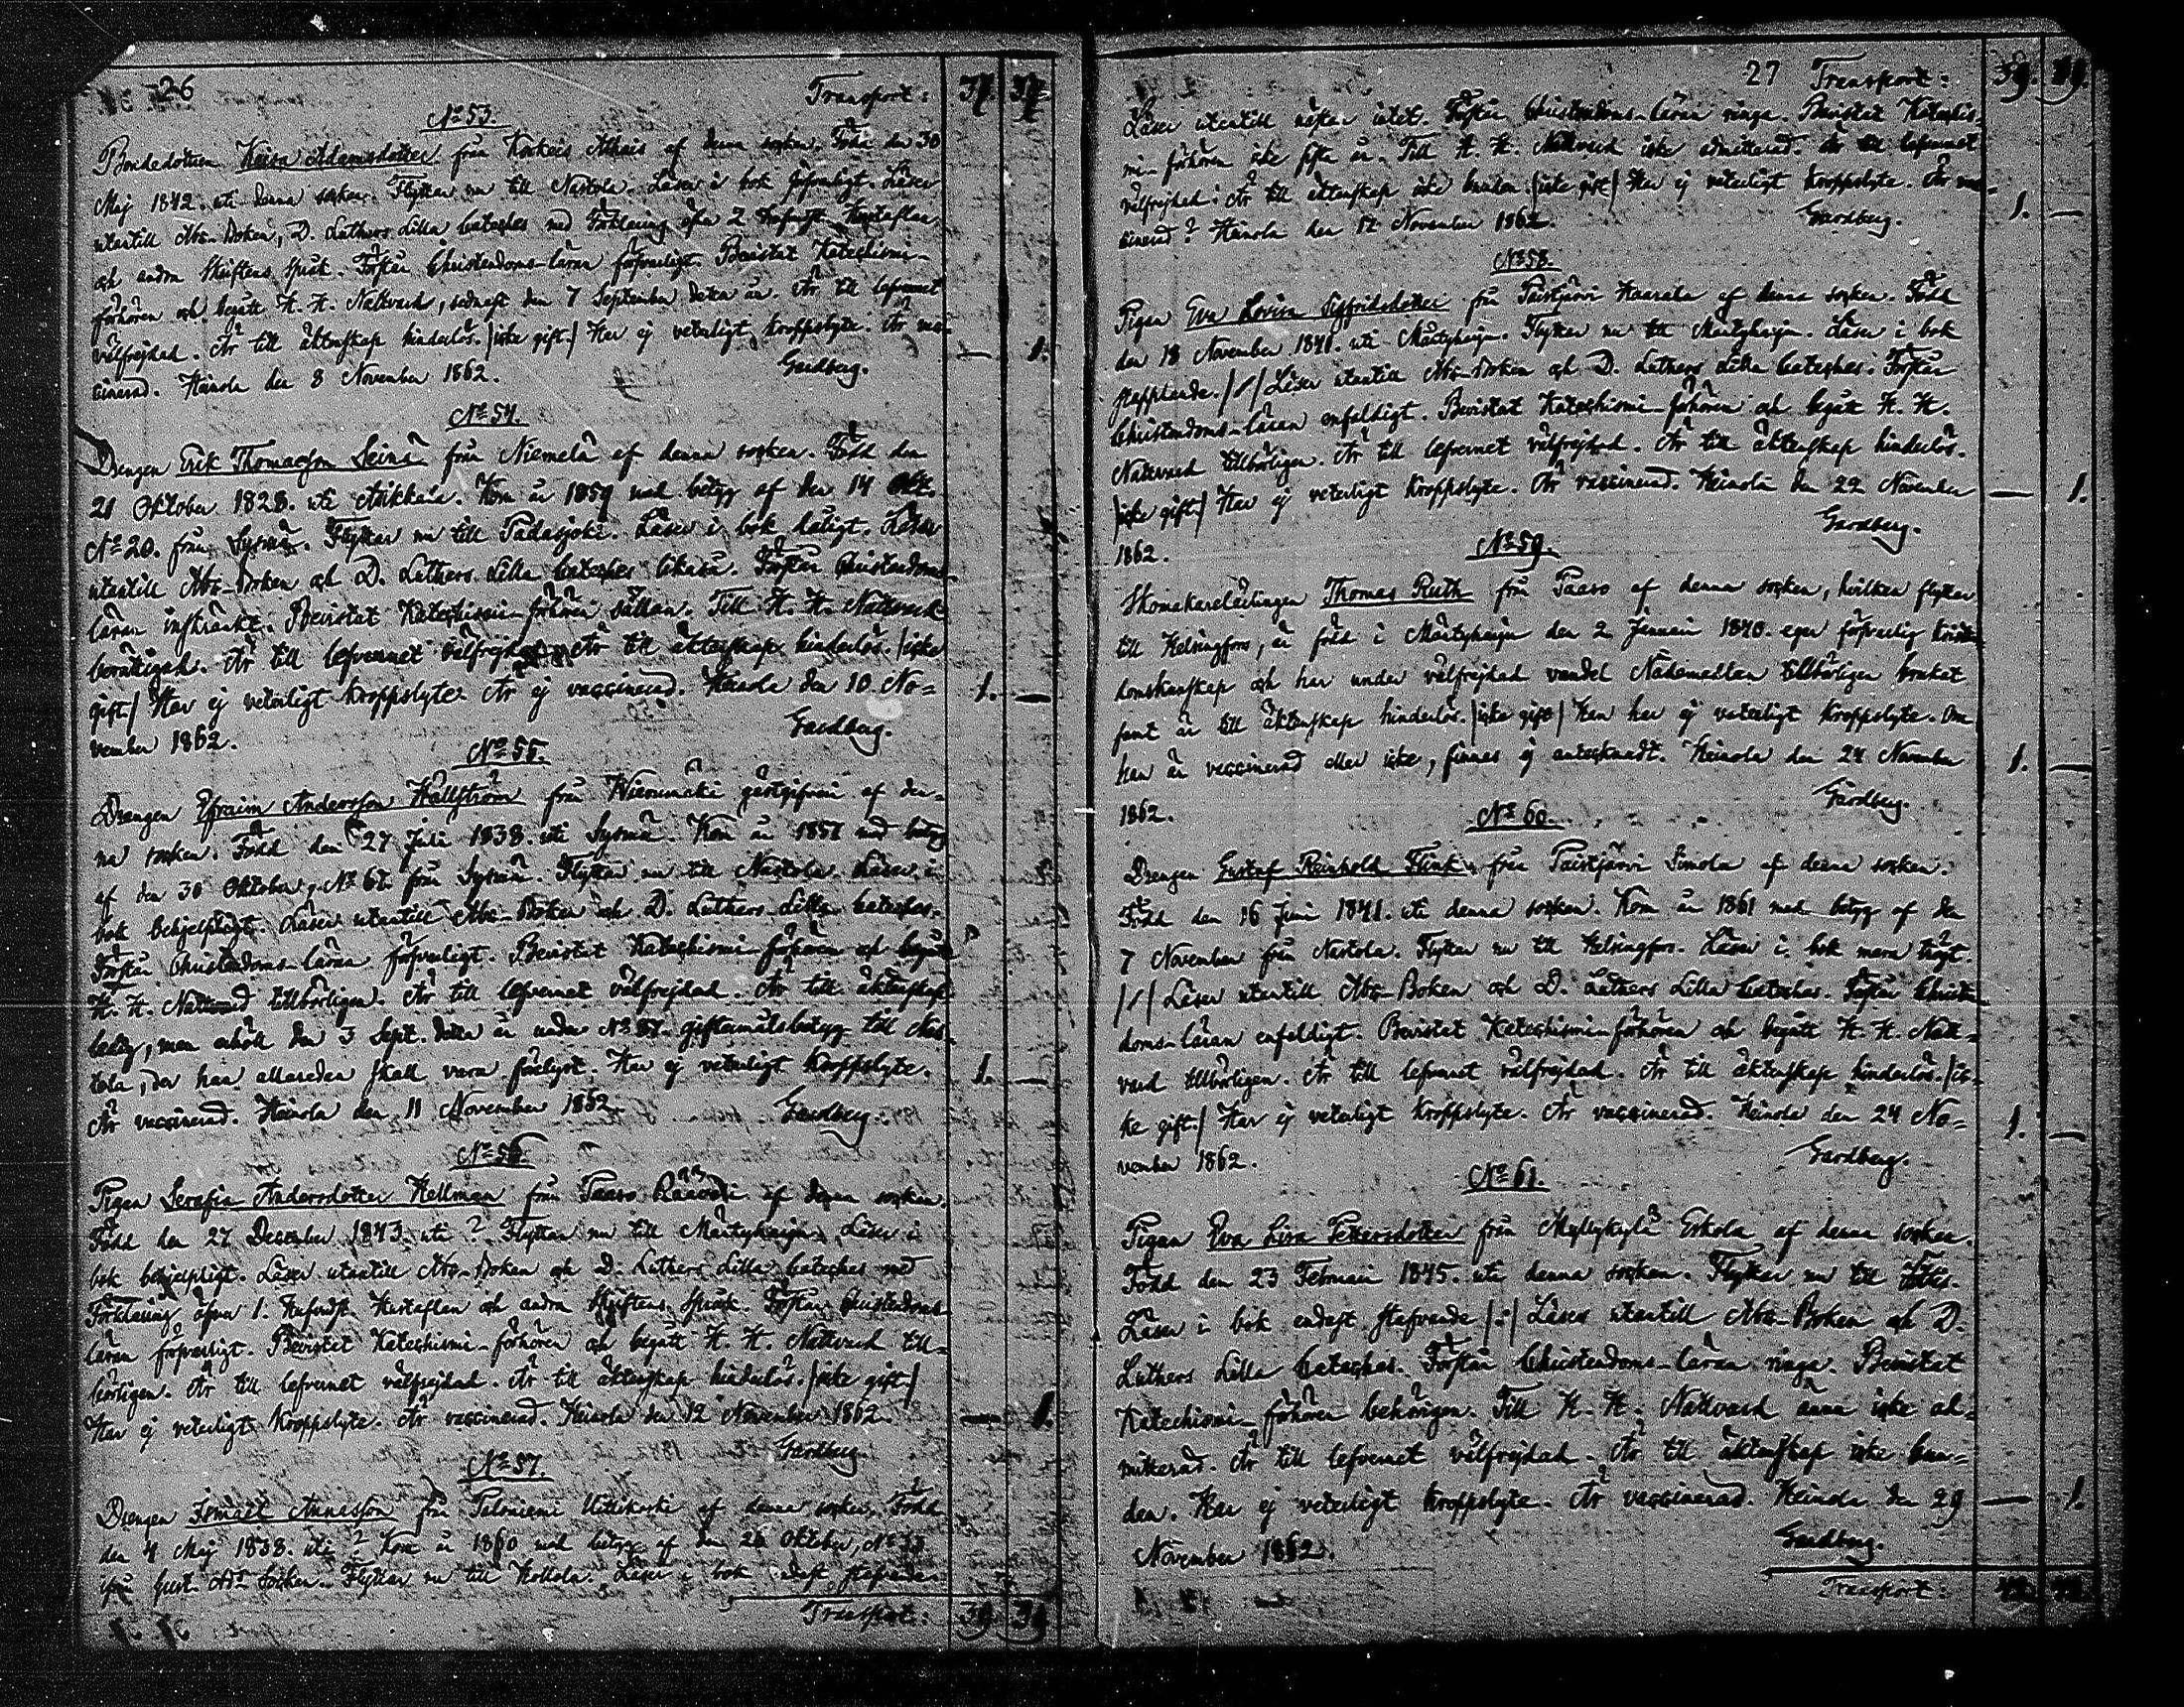 26 Transport: 37. 37
No 53.
Bondedottren Kaisa Adamsdotter från Korkeis Athais af denna socken. Född den 30
Maj 1842. uti denna socken. Flyttar nu till Nastola. Läser i bok försvarligt. Läser
utantill Abc-Boken, D. Luthers Lilla Cateches med Förklaring öfver 2 Hufvudst. Hustaflan
och andra Skriftens språk. Förstår Christendoms-läran försvarligt. Bevistat Katechismi-
förhören och begått H. H. Nattvard, sednast den 7 September detta år. Är till lefvernet
välfrejdad. Är till äktenskap hinderlös. /icke gift./ Har ej veterligt kroppslyte. Är vac- — 1.
cinerad. Heinola den 8 November 1862. Gardberg.
No 54.
Drengen Erik Thomasson Leinä från Niemelä af denna socken. Född den
21 Oktober 1828. uti Asikkala. Kom år 1859 med betyg af den 14 Okt.
No 20. från Sysmä. Flyttar nu till Padasjoki. Läser i bok dåligt. Läser
utantill Abc-Boken och D. Luthers Lilla Cateches likaså. Förstår Christendoms-
läran inskränkt. Bevistat Katechismi-förhören sällan. Till H. H. Nattvard
berättigad. Är till lefvernet välfrejdad. Är till äktenskap hinderlös. /icke
gift./ Har ej veterligt kroppslyte. Är ej vaccinerad. Heinola den 10 No= 1. —
vember 1862. Gardberg.
No 55.
Drengen Efraim Andersson Hällström från Wierumäki gästgifveri af den-
na socken. Född den 27 Juli 1838. uti Sysmä. Kom år 1857 med betyg
af den 30 Oktober, No 67. från Sysmä. Flyttar nu till Nastola. Läser i
bok behjelpligt. Läser utantill Abc-Boken och D. Luthers Lilla Cateches.
Förstår Christendoms-läran försvarligt. Bevistat Katechismi-förhören och begått
H. H. Nattvard tillbörligen. Är till lefvernet välfrejdad. Är till äktenskap
ledig, men erhöll den 3 Sept. detta år under No 37. giftermålsbetyg till Nas-
tola, der han allaredan skall vara förlyst. Har ej veterligt kroppslyte. 1. —
Är vaccinerad. Heinola den 11 November 1862. Gardberg.
No 56.
Pigan Serafia Andersdotter Hellman från Paaso af denna socken.
Född den 27 December 1843. uti ? Flyttar nu till Mäntyharju. Läser i
bok behjelpligt. Läser utantill Abc-Boken och D. Luthers Lilla Cateches med
Förklaring öfver 1. Hufvudst. Hustaflan och andra Skriftens språk. Förstår Christendoms-
läran försvarligt. Bevistat Katechismi-förhören och begått H. H. Nattvard till=
börligen. Är till lefvernet välfrejdad. Är till äktenskap hinderlös. /icke gift./
Har ej veterligt kroppslyte. Är vaccinerad. Heinola den 12 November 1862. — 1.
Gardberg.
No 57.
Drengen Ismael Annasson från Taloniemi af denna socken. Född
den 4 Maj 1838. uti ? Kom år 1860 med betyg af den 26 Oktober, No 33
ifrån Gust. Ad. Socken. Flyttar nu till Hollola. Läser i bok endast stafvande.
Transport: 39 39
27 Transport: 39. 39.
Läser utantill nästan intet. Förstår Christendoms-läran ringa. Bevistat Katechis-
mi-förhören icke sista år. Till H. H. Nattvard icke admitterad. Är till lefvernet
välfrejdad. Är till äktenskap icke bunden. /icke gift/ Har ej veterligt kroppslyte. Är vac-
cinerad? Heinola den 17 November 1862. Gardberg. 1. —
No 58.
Pigan Eva Lovisa Sigfridsdotter från Paistjärvi Haarala af denna socken. Född
den 18 November 1841. uti Mäntyharju. Flyttar nu till Mäntyharju. Läser i bok
stapplande. /:/ Läser utantill Abc-Boken och D. Luthers Lilla Cateches. Förstår
Christendoms-läran enfaldigt. Bevistat Katechismi-förhören och begått H. H.
Nattvard tillbörligen. Är till lefvernet välfrejdad. Är till äktenskap hinderlös.
/icke gift./ Har ej veterligt kroppslyte. Är vaccinerad. Heinola den 22 November — 1.
1862. Gardberg.
No 59.
Skomakarelärlingen Thomas Ruth från Paaso af denna socken, hvilken flyttar
till Helsingfors, är född i Mäntyharju den 2 Januari 1840. eger försvarlig kristen-
domskunskap och har under välfrejdad vandel Nådemedlen tillbörligen brukat
samt är till äktenskap hinderlös. /icke gift/ Han har ej veterligt kroppslyte. Om
han är vaccinerad eller icke, finnes ej antecknadt. Heinola den 24 November 1. —
1862. Gardberg.
No 60.
Drengen Gustaf Reinhold Flink från Paistjärvi Simola af denna socken.
Född den 16 Juni 1841. uti denna socken. Kom år 1861 med betyg af den
7 November från Nastola. Flyttar nu till Helsingfors. Läser i bok mera trögt.
/:/ Läser utantill Abc-Boken och D. Luthers Lilla Cateches. Förstår Christen-
doms-läran enfaldigt. Bevistat Katechismi-förhören och begått H. H. Natt=
vard tillbörligen. Är till lefvernet välfrejdad. Är till äktenskap hinderlös. /ic=
ke gift./ Har ej veterligt kroppslyte. Är vaccinerad. Heinola den 24 No= 1. —
vember 1862. Gardberg.
No 61.
Pigan Eva Lisa Pettersdotter från Myllykylä Erkola af denna socken.
Född den 23 Februari 1845. uti denna socken. Flyttar nu till
Läser i bok endast stafvande /:/ Läser utantill Abc-Boken och D.
Luthers Lilla Cateches. Förstår Christendoms-läran ringa. Bevistat
Katechismi-förhören behörigen. Till H. H. Nattvard ännu icke ad=
mitterad. Är till lefvernet välfrejdad. Är till äktenskap icke bun=
den. Har ej veterligt kroppslyte. Är vaccinerad. Heinola den 29 — 1.
November 1862. Gardberg.
Transport: